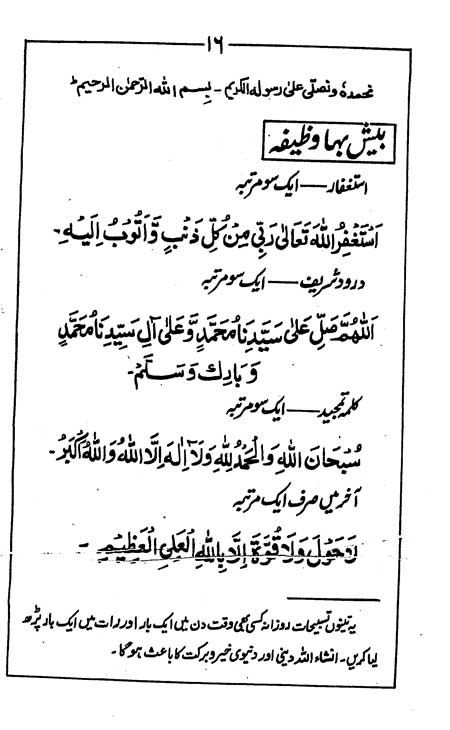 ۱۶
نحمدہٗ ونصلی علیٰ رسولہ الکریم - بِسم اللہ الرّحمٰن الرحیم ط
بیش بہا وظیفہ
استغفار — ایک سو مرتبہ
اَسْتَغْفِرُ اللّٰهَ تَعَالٰى رَبِّىْ مِنْ كُلِّ ذَنْبٍ وَّاَتُوْبُ اِلَيْهِ -
درود شریف — ایک سو مرتبہ
اَللّٰهُمَّ صَلِّ عَلٰى سَيِّدِنَا مُحَمَّدٍ وَّعَلٰى اٰلِ سَيِّدِنَا مُحَمَّدٍ
وَبَارِكْ وَسَلَّمْ -
کلمہ تمجید — ایک سو مرتبہ
سُبْحَانَ اللّٰهِ وَالْحَمْدُ لِلّٰهِ وَلَآ اِلٰهَ اِلَّا اللّٰهُ وَاللّٰهُ اَكْبَرُ -
آخر میں صرف ایک مرتبہ
لَاحَوْلَ وَلَا قُوَّةَ اِلَّا بِاللّٰهِ الْعَلِىِّ الْعَظِيْمِ -
یہ تینوں تسبیحات روزانہ کسی بھی وقت دن میں ایک بار اور رات میں ایک بار پڑھ
لیا کریں - انشاء اللہ دینی اور دنیوی خیر و برکت کا باعث ہوگا -